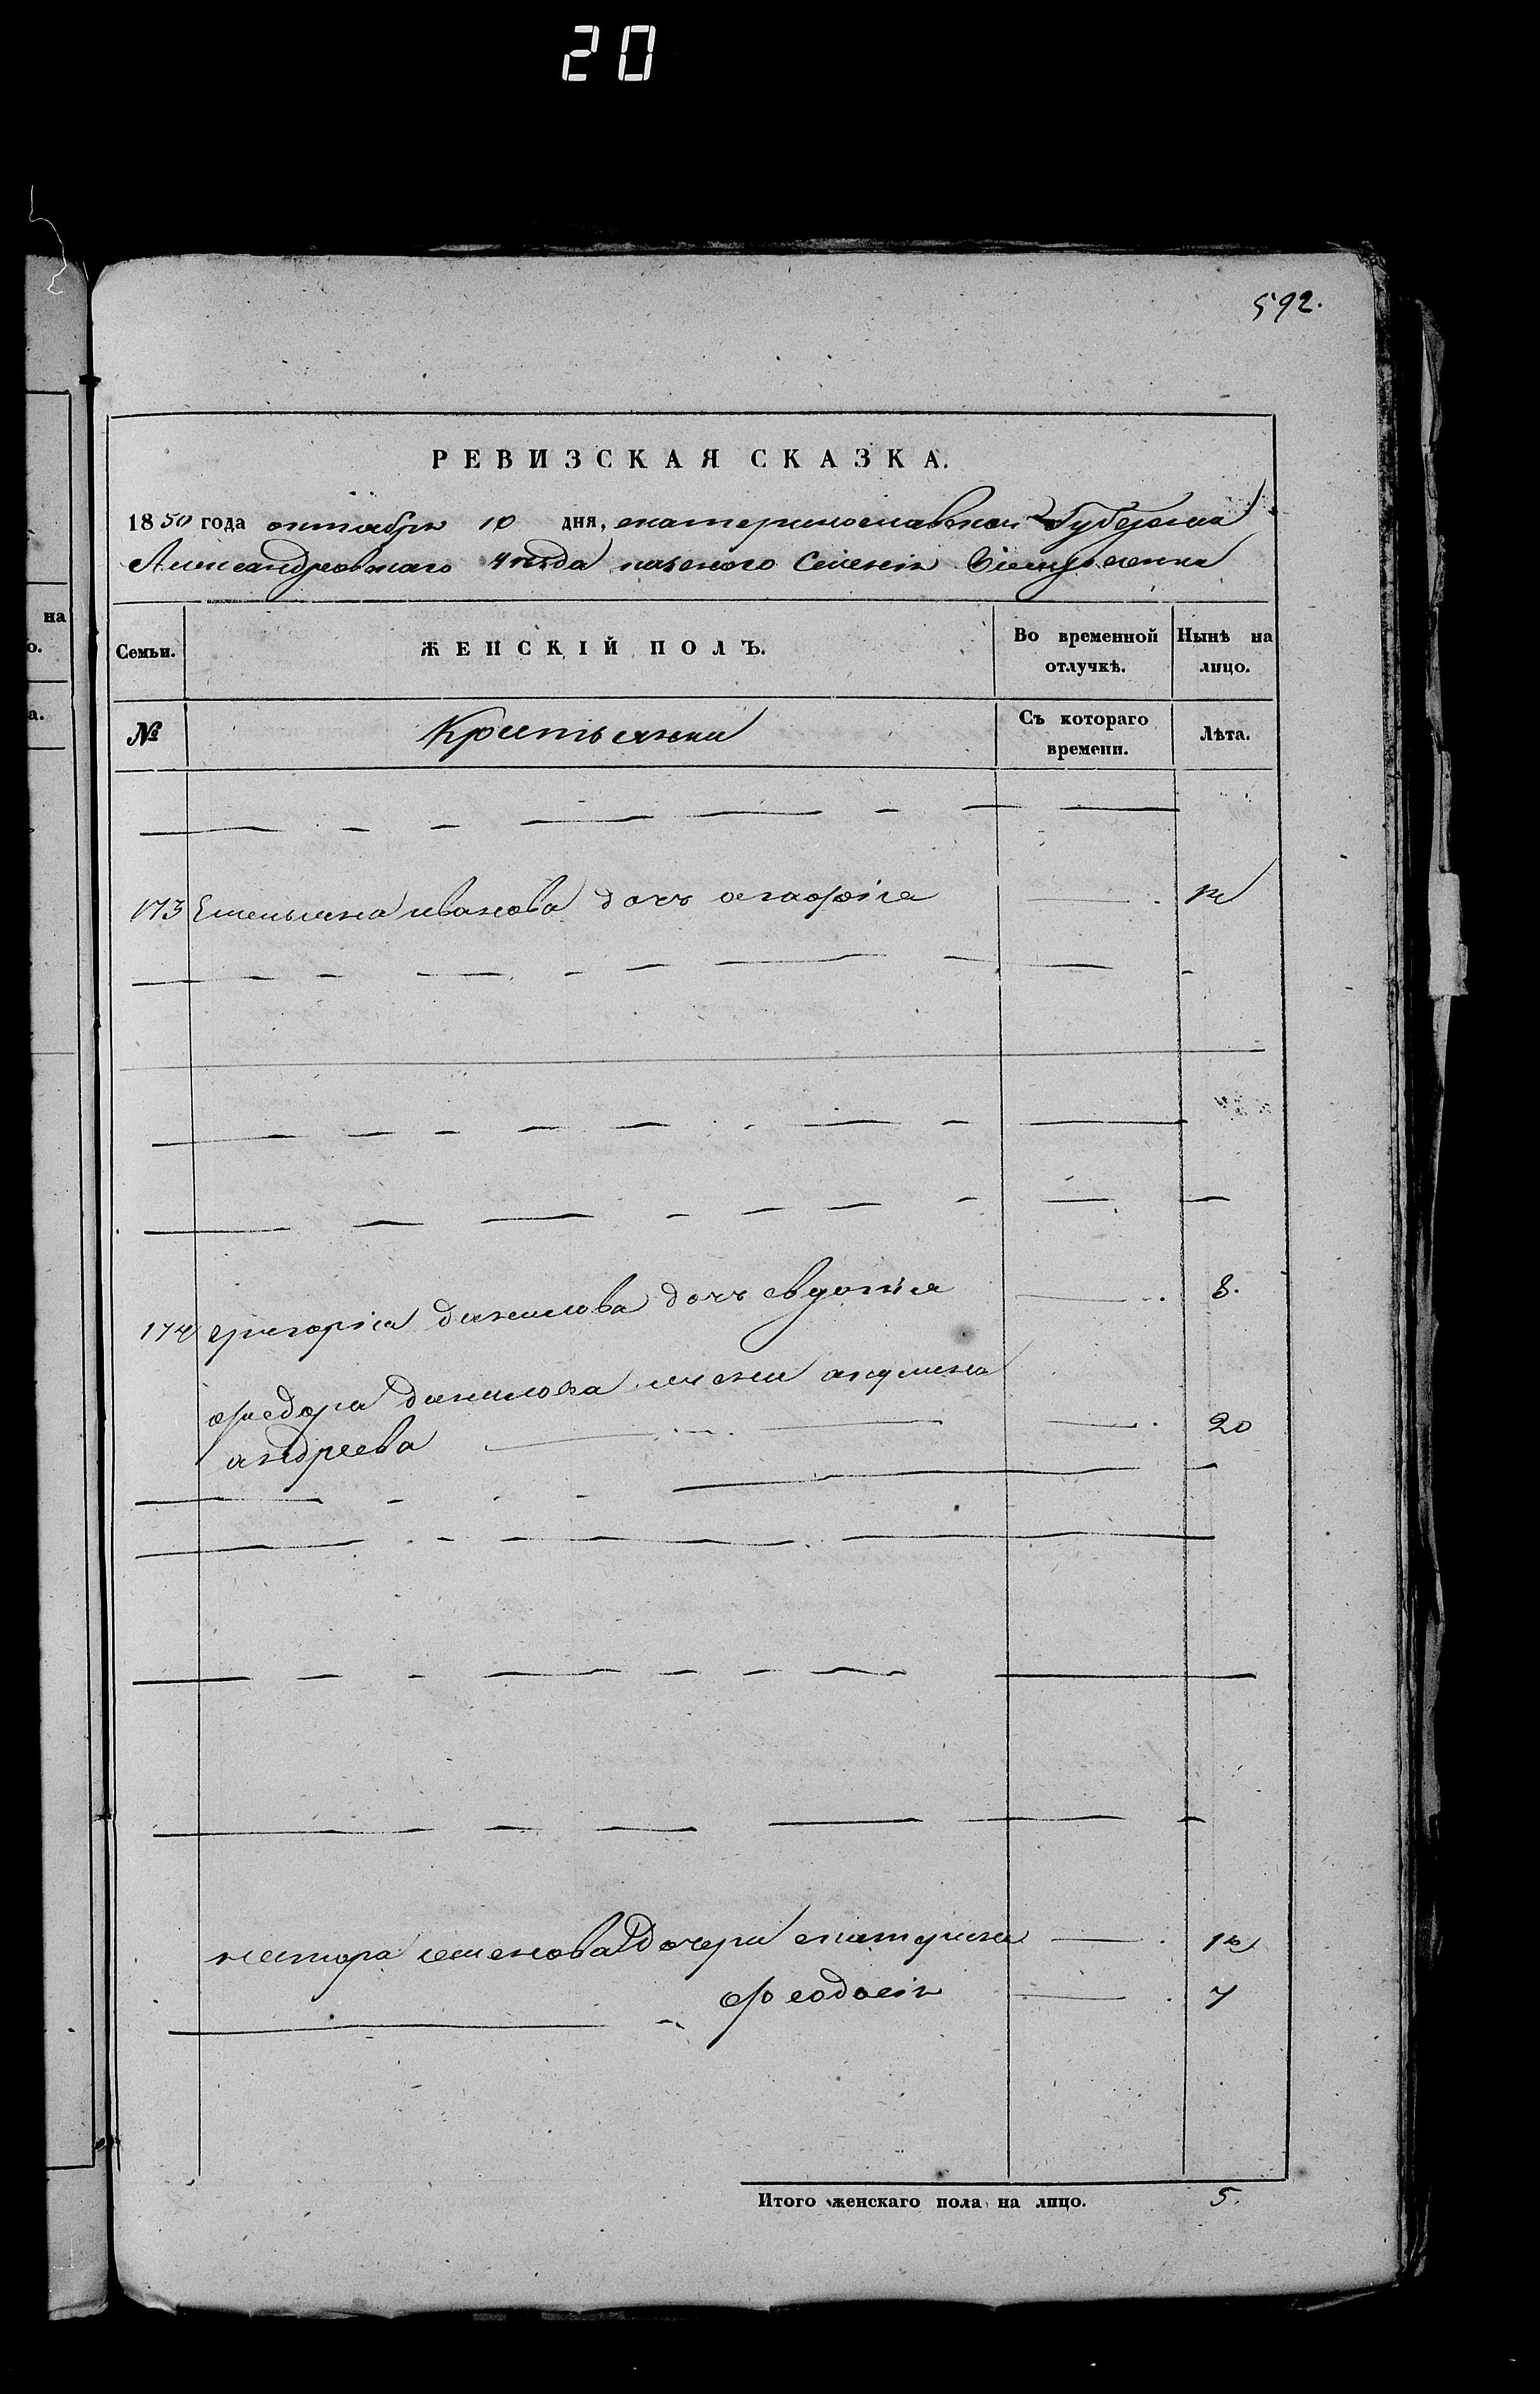 20
592.
РЕВИЗСКАЯ СКАЗКА.
1850 года октября 10 дня, екатеринославской Губернии
Александровского уезда казеного Селения
на
о.
а.
Семьи. ЖЕНСКІЙ ПОЛЪ. Во временной отлучкѣ. Нынѣ на лицо.
№ Крестьянки Съ котораго времени. Лѣта.
173 Емельяна иванова дочь агафия
174 григория данилова дочь евдокия 8.
федора данилова жена акулина
андреева 20
нестора семенова дочери екатерина
феодосия 7
Итого женскаго пола на лицо. 5.